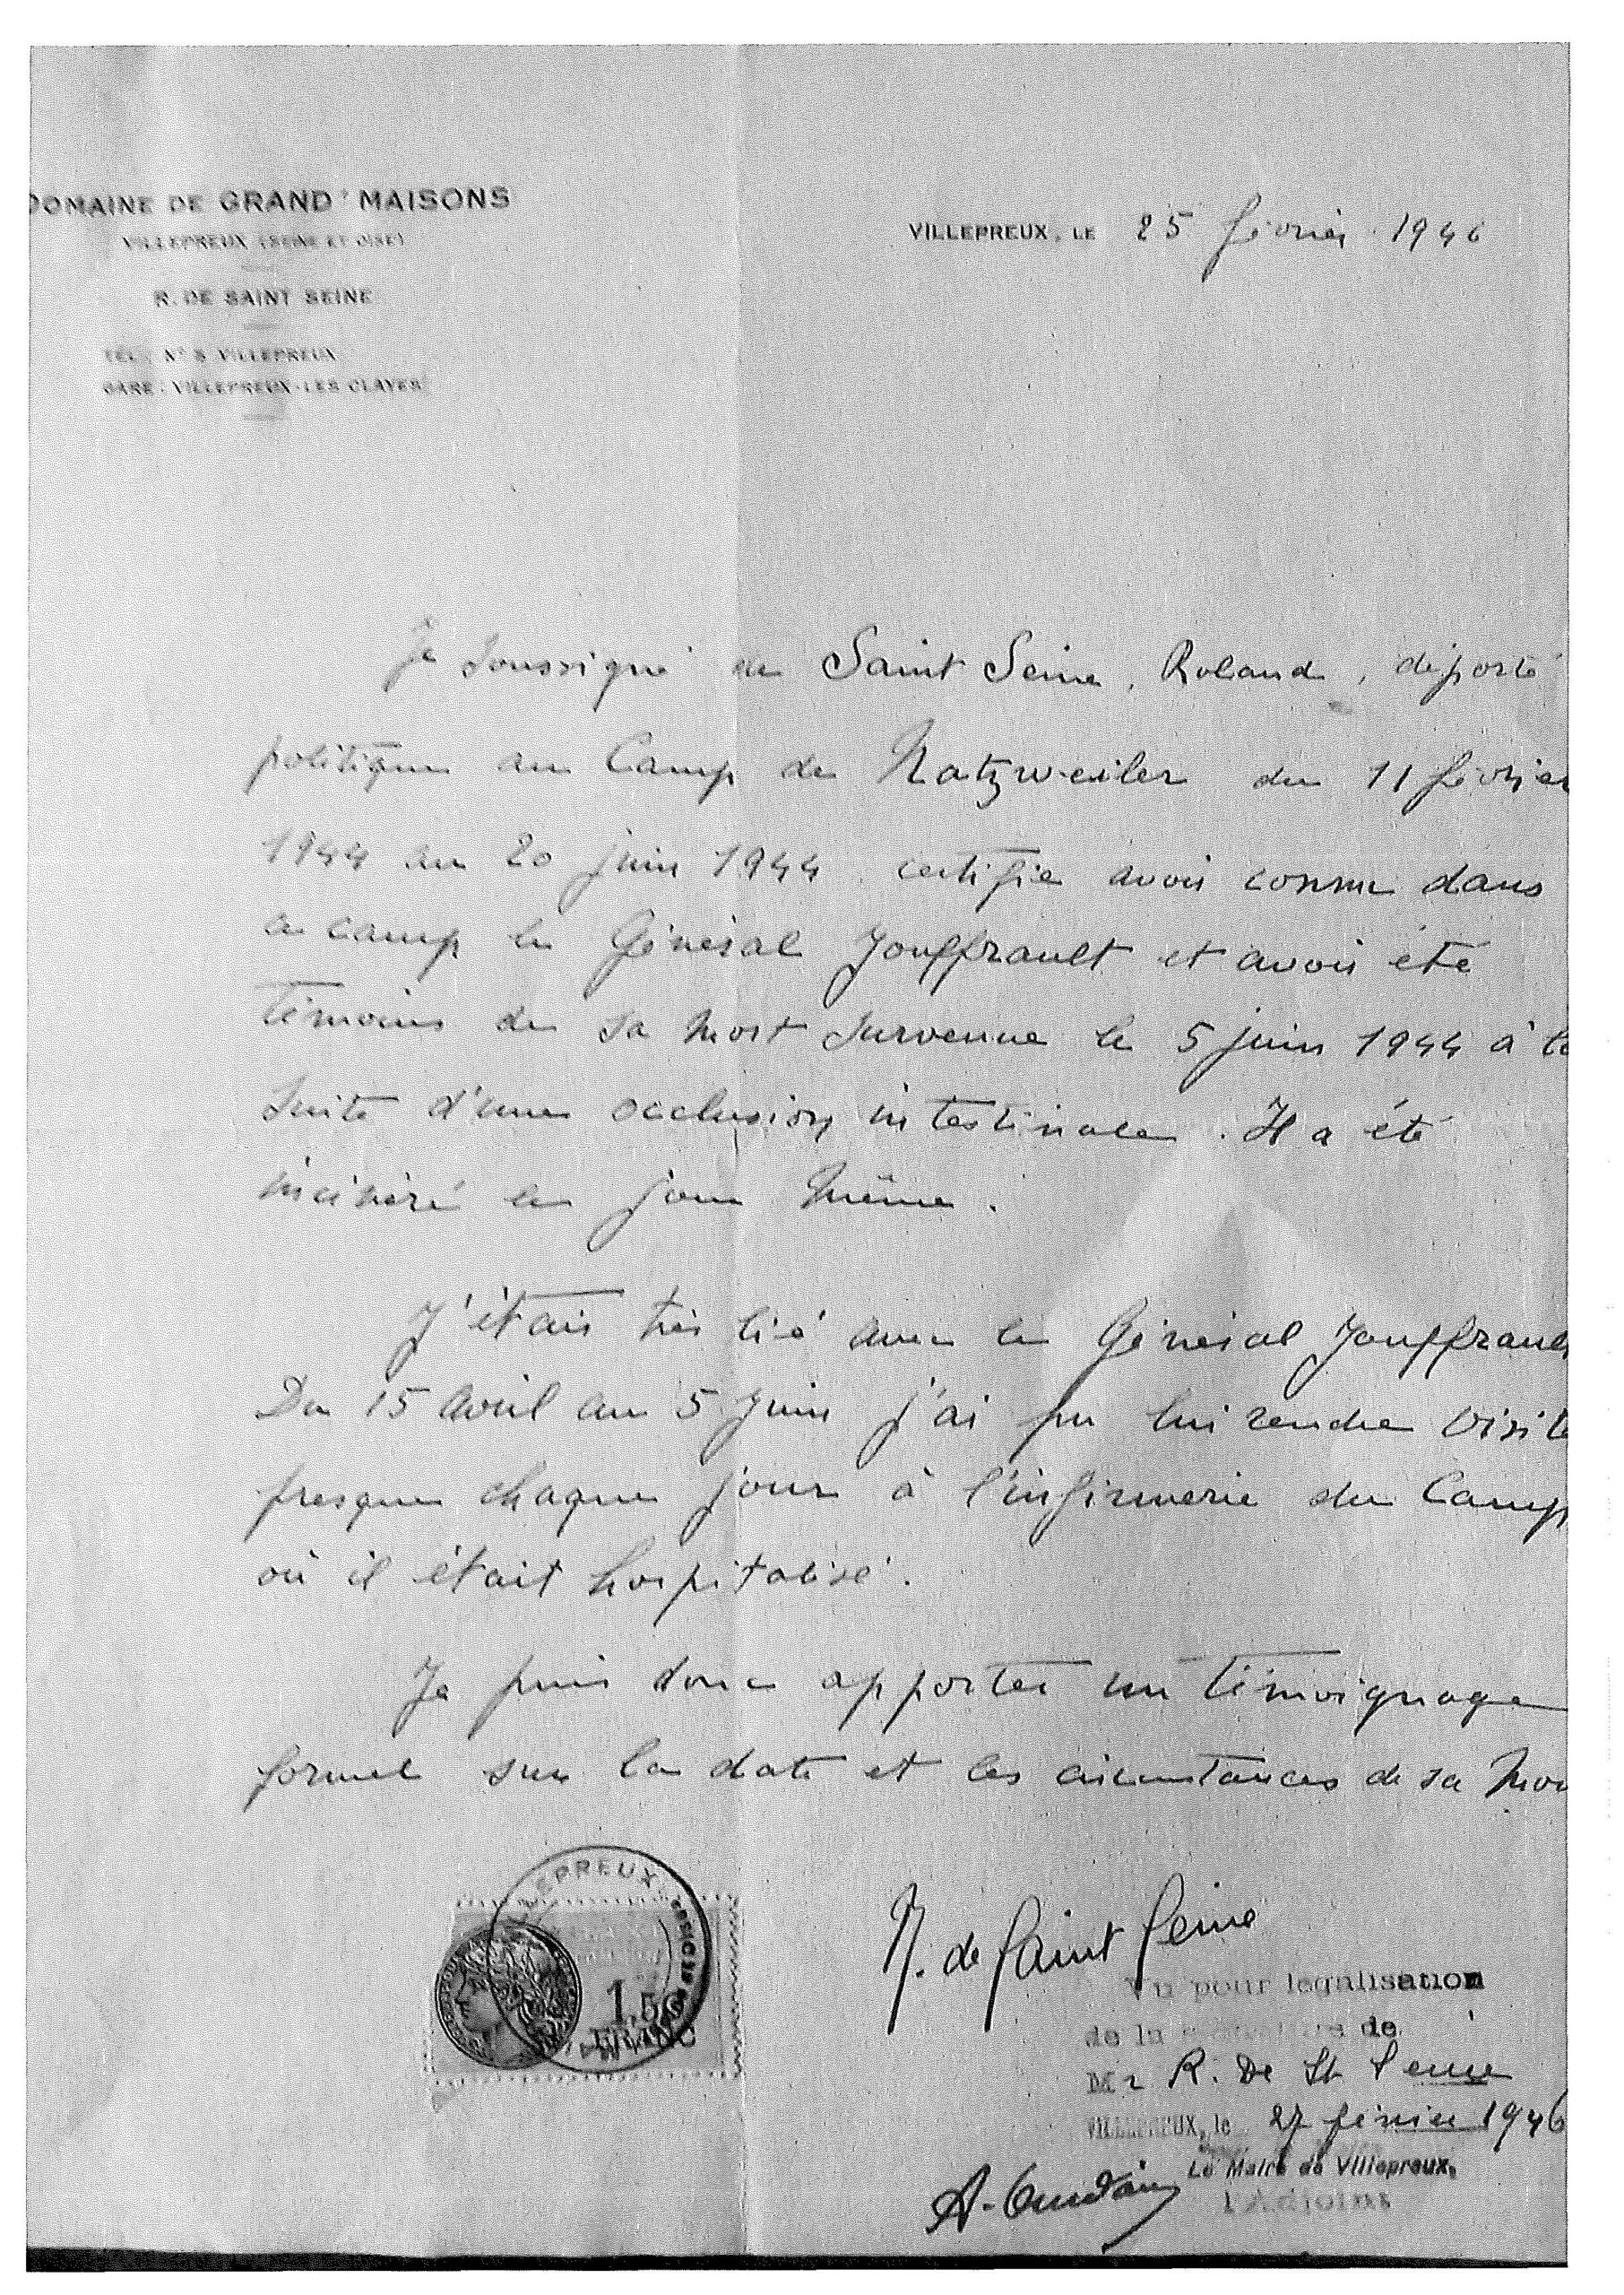 DOMAINE DE GRAND' MAISONS
VILLEPREUX (SEINE ET OISE)
R. DE SAINT SEINE
TÉL. N° 8 VILLEPREUX
GARE : VILLEPREUX-LES CLAYES
VILLEPREUX, LE 25 février 1946
Je soussigné de Saint Seine, Roland, déporté
politique au Camp de Natzweiler du 11 février
1944 au 20 juin 1944 certifie avoir connu dans
ce camp le Général Jouffrault et avoir été
témoins de sa mort survenue le 5 juin 1944 à la
suite d'une occlusion intestinale. Il a été
incinéré le jour même.
J'étais très lié avec le Général Jouffrault
Du 15 Avril au 5 juin j'ai pu lui rendre visite
presque chaque jour à l'infirmerie du Camp
où il était hospitalisé.
Je puis donc apporter un témoignage
formel sur la date et les circonstances de sa mor
VILLEPREUX
1,50
FRANC
R. de Saint Seine
Vu pour légalisation
de la signature de
Mr R. De St Seine
VILLEPREUX, le 27 février 1946
Le Maire de Villepreux,
l'Adjoint